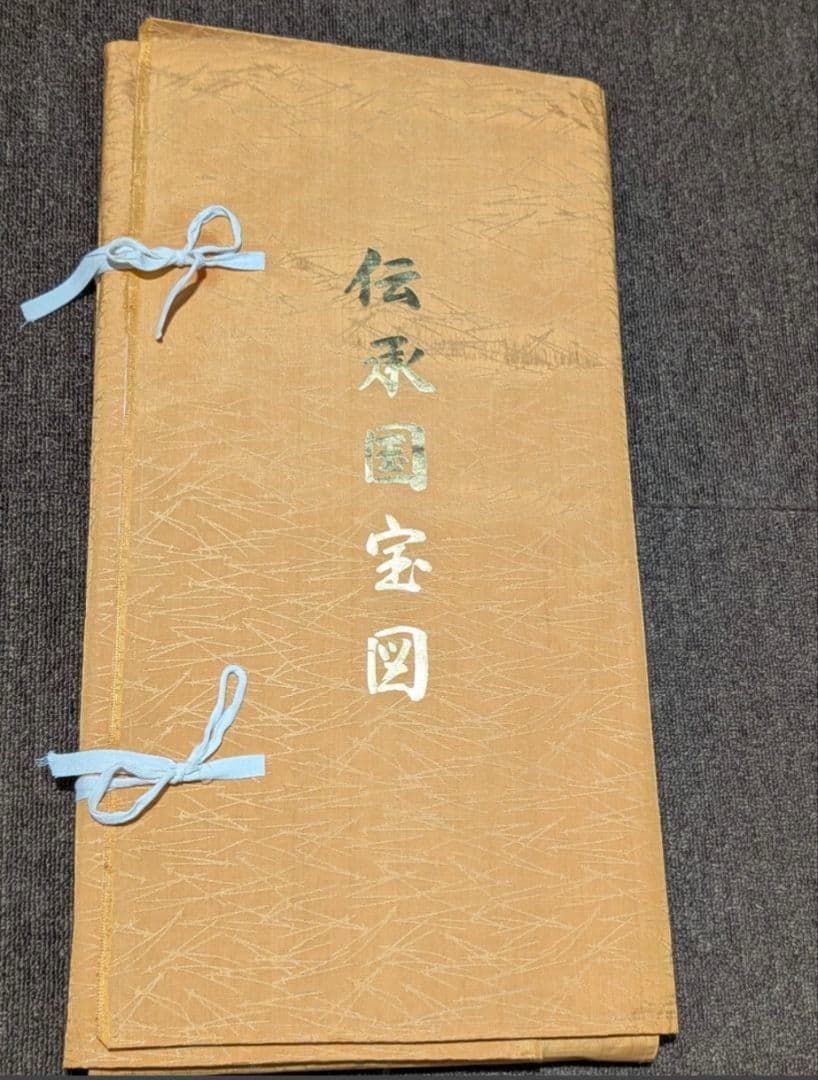 伝承国宝図